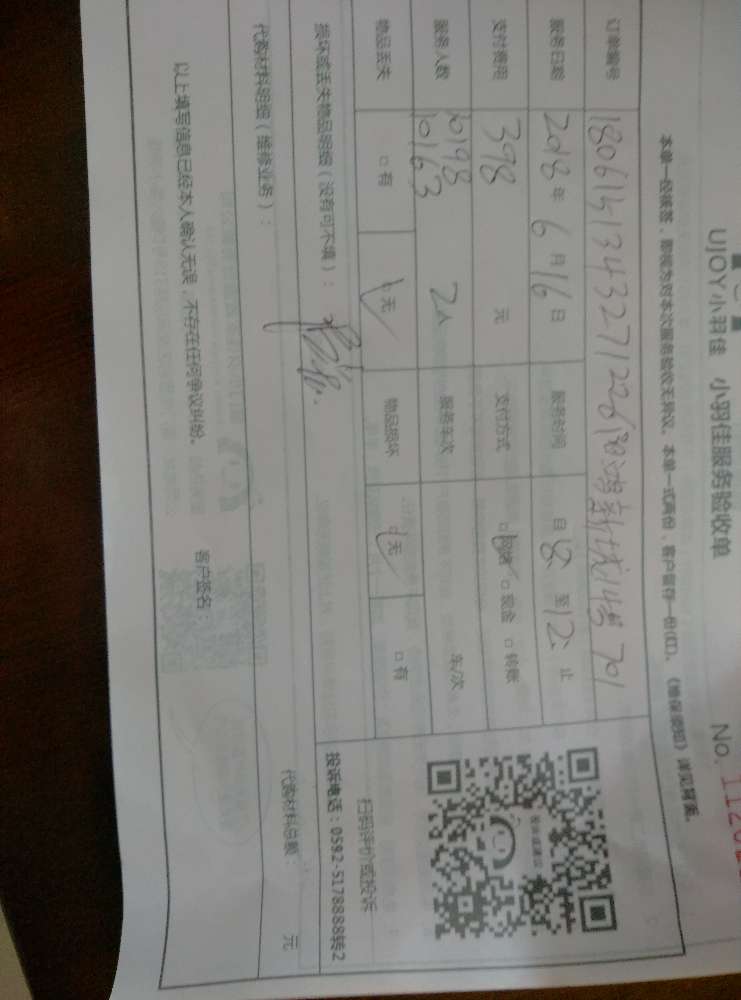 UJOY小羽佳 小羽佳服务验收单
No. 1120
本单一经接签，即视为对本次服务验收无异议。本单一式两份，客户留存一份(红)。《维保须知》详见背面。
订单编号 180615134327122 鸿新城 701
服务日期 2018年6月16日 服务时间 自 8: 至 12: 止
支付费用 398 元 支付方式 □网络 □现金 □转账
服务人数 10198 10163 2人 服务车次 车/次
物品丢失 □有 □无 物品损坏 □无 □有
损坏或丢失物品明细（没有可不填）：
扫码评价或投诉
投诉电话：0592-5178888转2
代购材料明细（维修业务）：
代购材料总额： 元
以上填写信息已经本人确认无误，不存在任何争议纠纷。 客户签名：